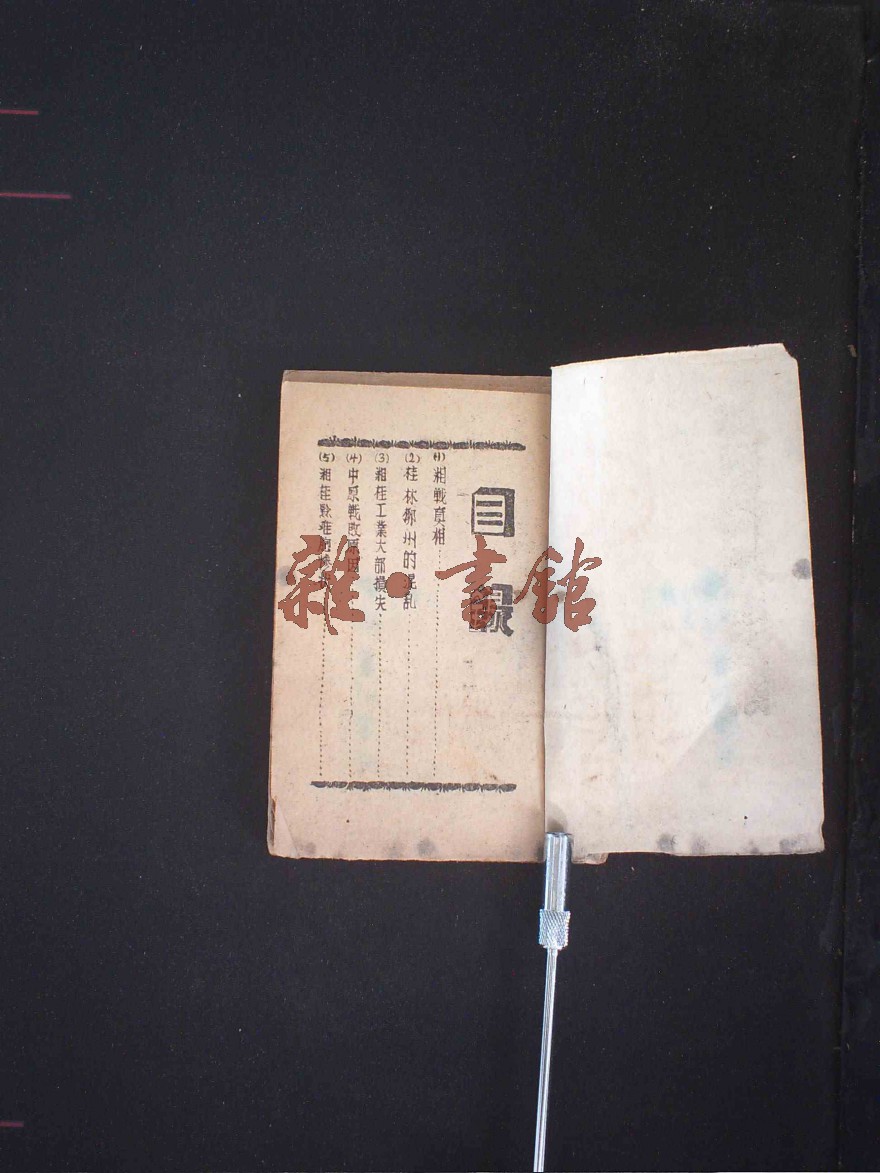 目錄
(1)湘戰真相
(2)桂林柳州的混乱
(3)湘桂工業大部損失
(4)中原戰敗原因
(5)湘桂黔難
雜·書館